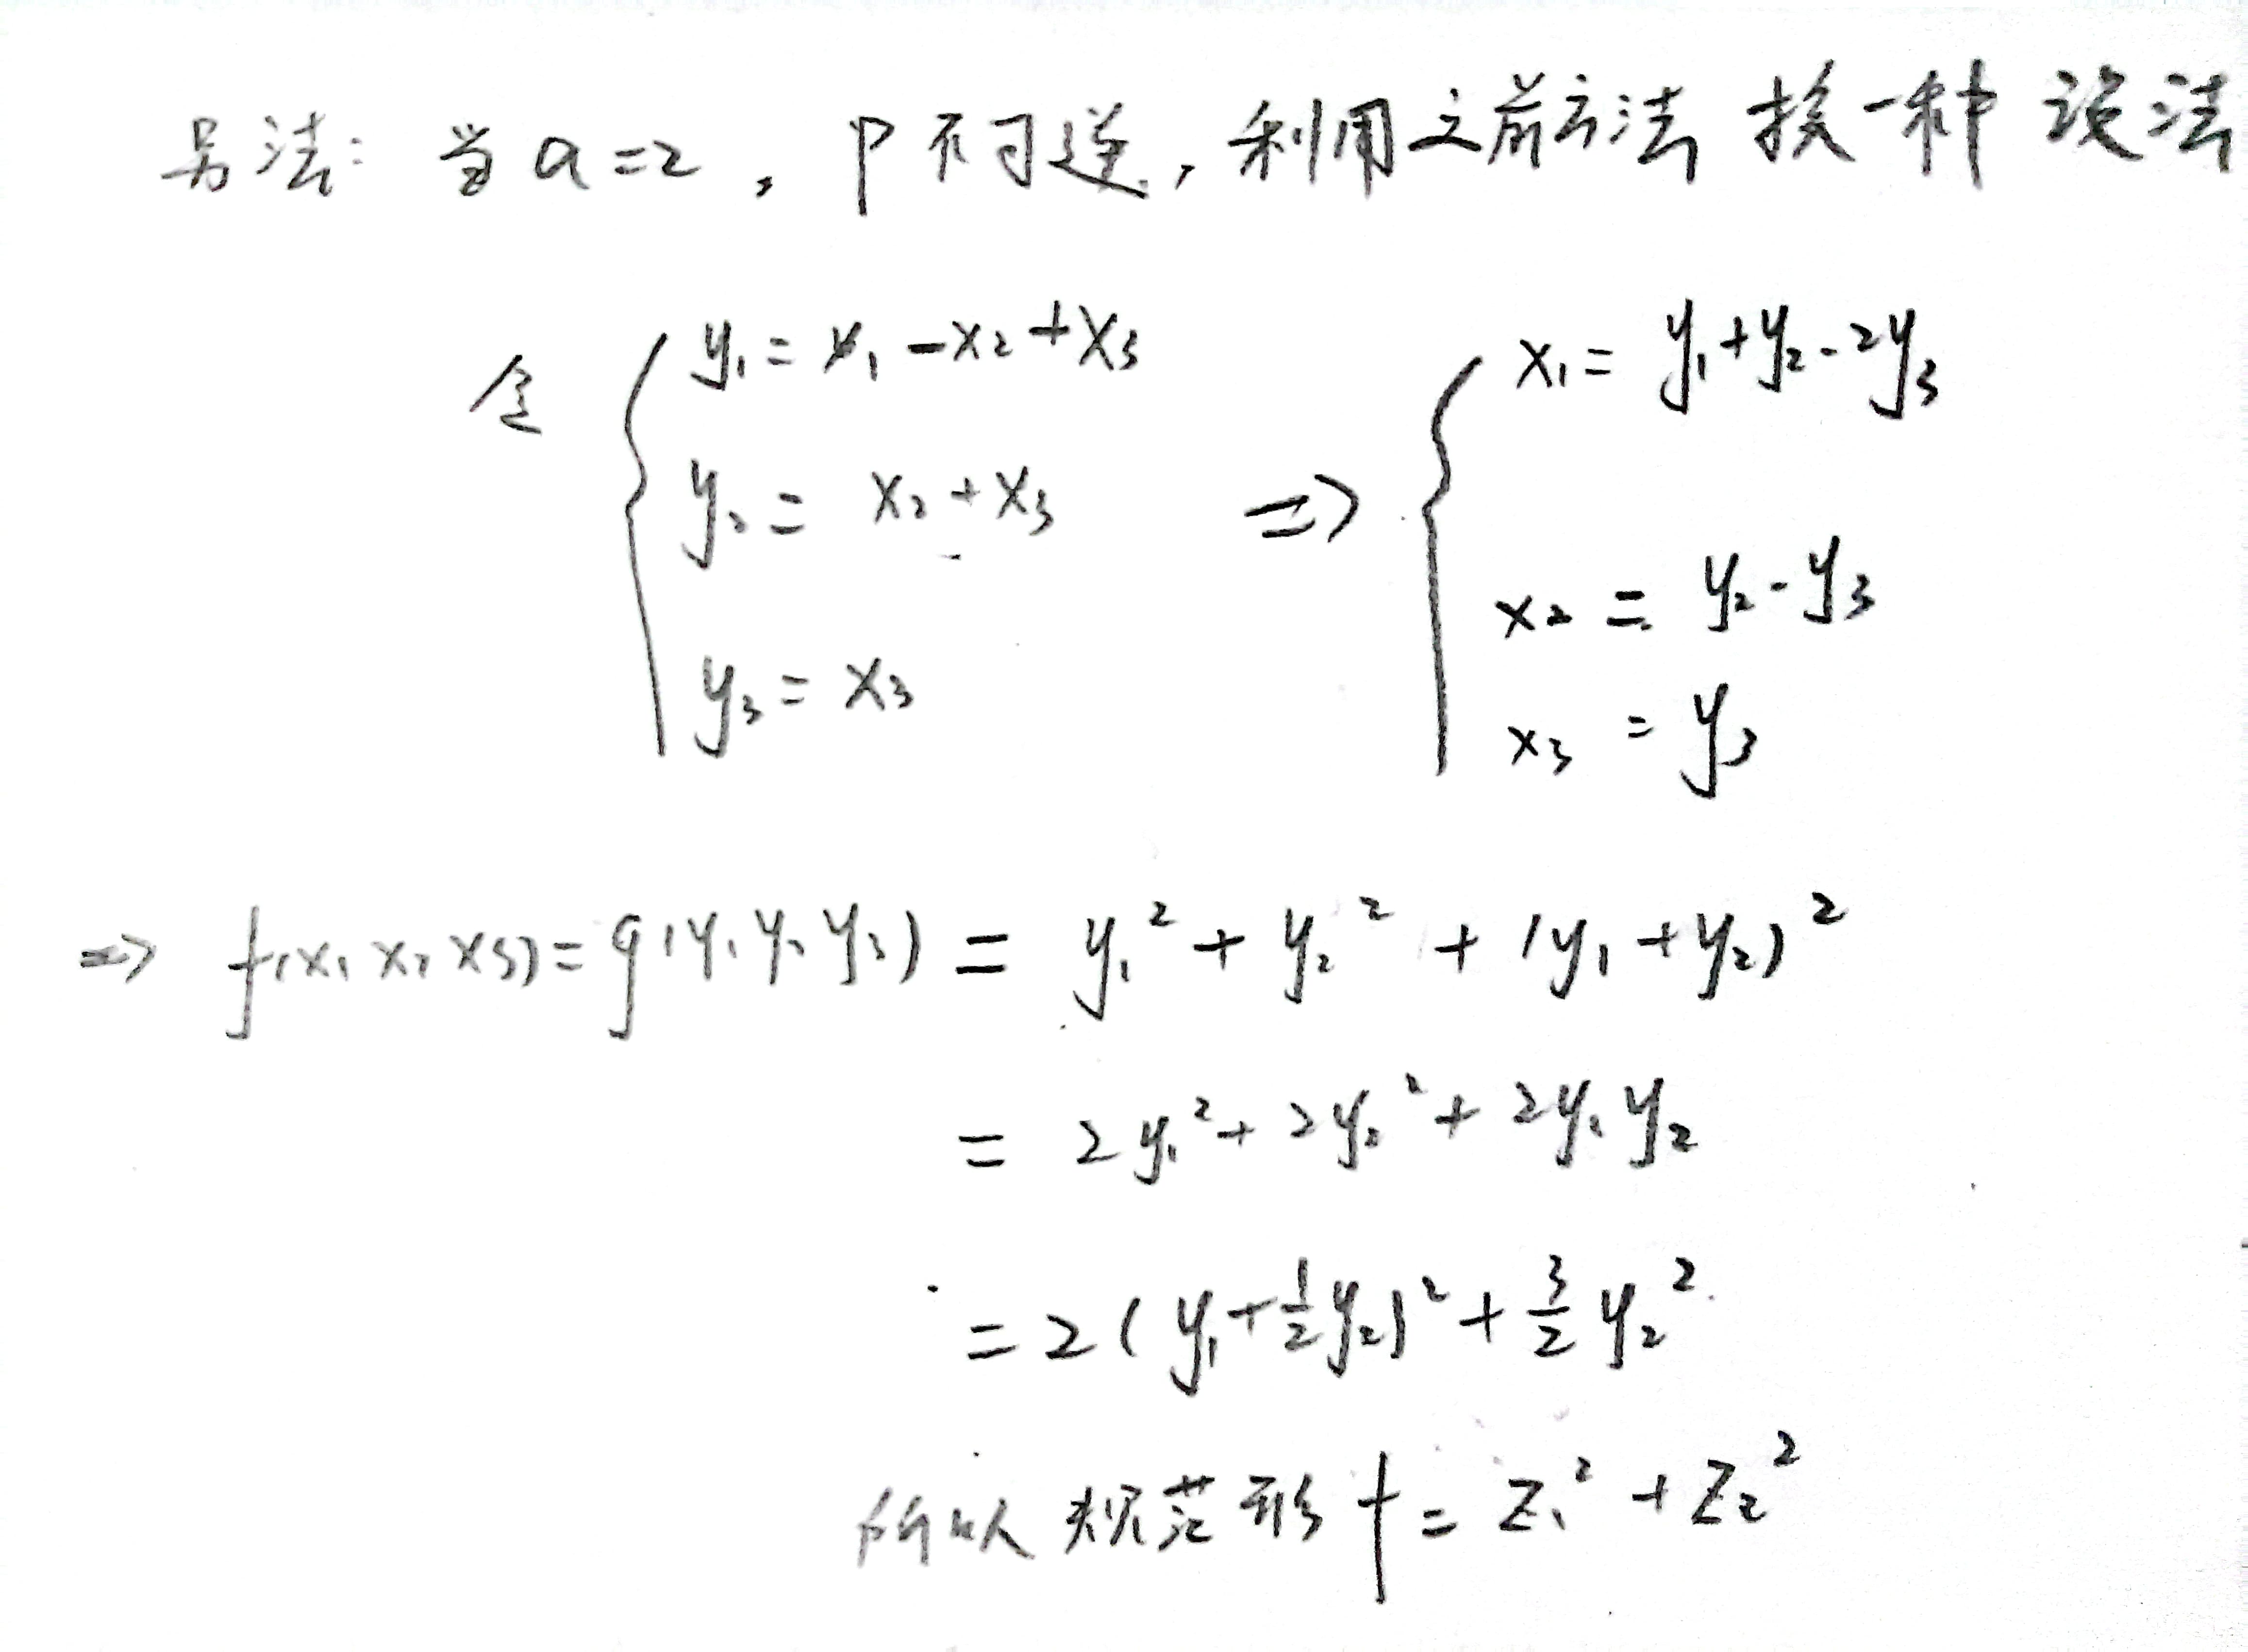 另法: 当 a=2, P不可逆, 利用之前方法 换一种 设法
令 { y₁ = x₁ - x₂ + x₃ x₁ = y₁ + y₂ - 2y₃
y₂ = x₂ + x₃ => { x₂ = y₂ - y₃
y₃ = x₃ x₃ = y₃
=> f(x₁ x₂ x₃) = g(y₁ y₂ y₃) = y₁² + y₂² + (y₁ + y₂)²
= 2y₁² + 2y₂² + 2y₁y₂
= 2(y₁ + ½y₂)² + 3/2 y₂²
所以 规范形 f = z₁² + z₂²